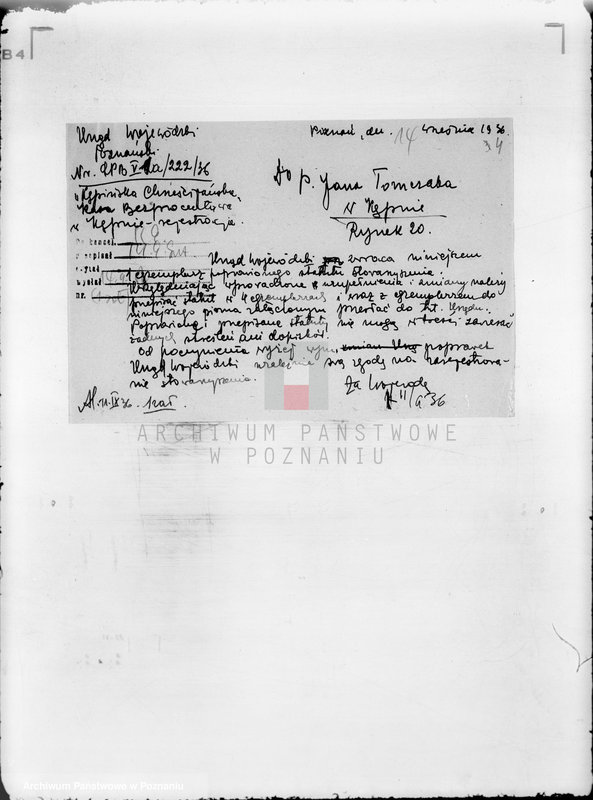 B4
Urząd Wojewódzki
Poznański
Nr. APB V-1a/222/36
Poznań, dn. 14 września 1936.
34
"Kępińska Chrześcijańska
Kasa Bezprocentowa"
w Kępnie - rejestracja.
Do p. Jana Tomczaka
w Kępnie
Rynek 20.
Urząd Wojewódzki zwraca niniejszem
1 egzemplarz poprawionego statutu stowarzyszenia.
Uwzględniając wprowadzone uzupełnienia i zmiany należy
przepisać statut w 4 egzemplarzach i wraz z egzemplarzem do
niniejszego pisma załączonym przesłać do tut. Urzędu.
Poprawione i przepisane statuty nie mogą w treści zawierać
żadnych skreśleń ani dopisków.
Od poczynienia wyżej wym. poprawek
Urząd Wojewódzki uzależnia swą zgodę na zarejestrowa-
nie stowarzyszenia.
Za Wojewodę
11/9 36
11.IX 36. 1 zał.
ARCHIWUM PAŃSTWOWE
W POZNANIU
Archiwum Państwowe w Poznaniu